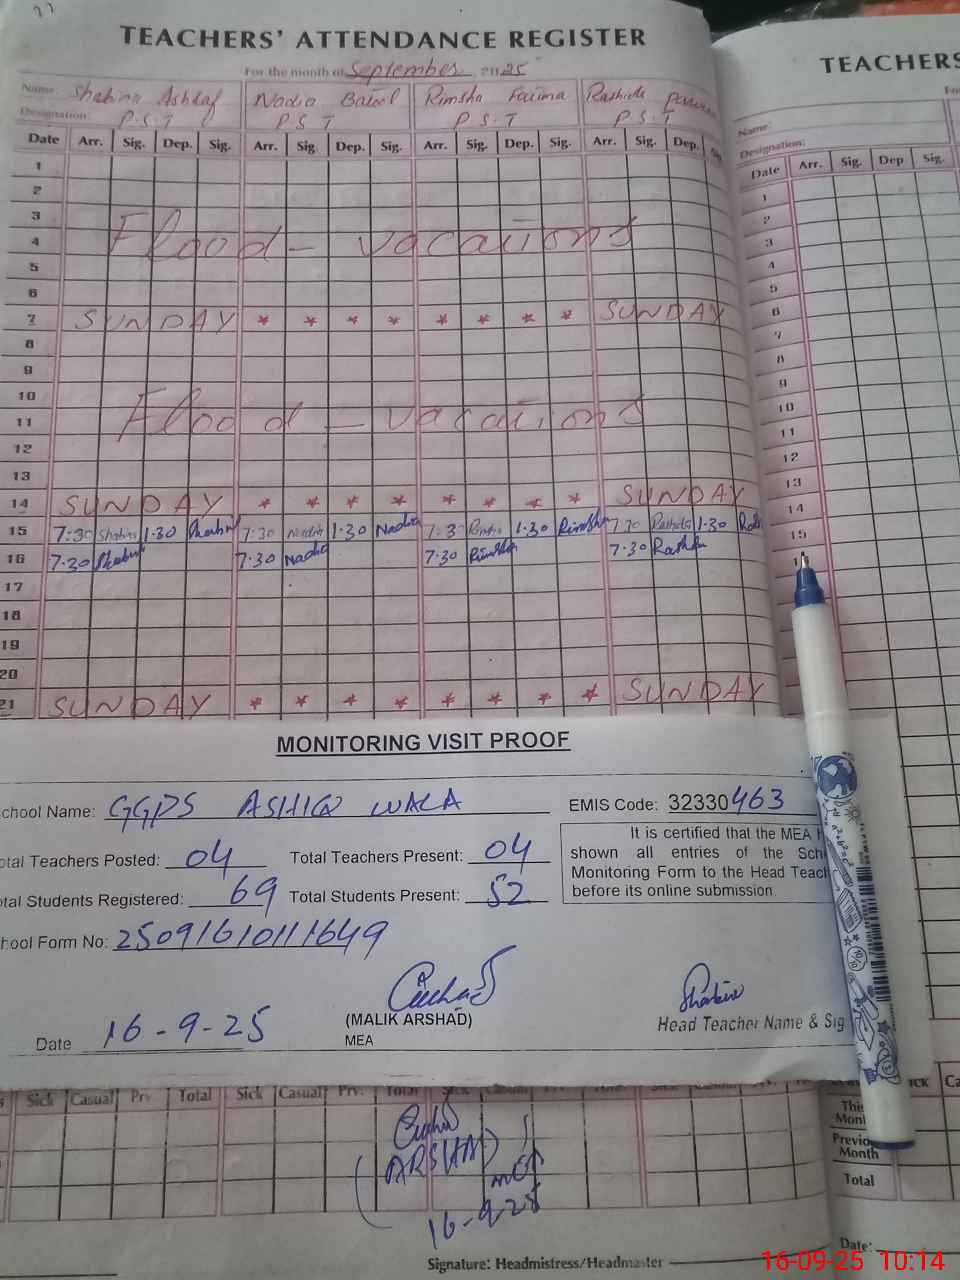 TEACHERS' ATTENDANCE REGISTER
For the month of September 2025
Name: Shahina Ashraf Nadia Batool Rimsha Fatima Rashida
Designation: P.S.T P.S.T P.S.T P.S.T
Date Arr. Sig. Dep. Sig. Arr. Sig Dep. Sig. Arr. Sig. Dep. Sig. Arr. Sig. Dep. Sig
1
2
3
4 Flood - vacations
5
6
7 SUNDAY * * * * * * * * SUNDAY
8
9
10
11 Flood - vacations
12
13
14 SUNDAY * * * * * * * * SUNDAY
15 7:30 Shahina 1:30 Shahina 7:30 Nadia 1:30 Nadia 7:30 Rimsha 1:30 Rimsha 7:30 Rashida 1:30
16 7:30 7:30 Nadia 7:30 Rimsha 7:30
17
18
19
20
21 SUNDAY * * * * * * * * SUNDAY
TEACHERS
Name:
Designation:
Date Arr. Sig. Dep Sig.
1
2
3
4
5
6
7
8
9
10
11
12
13
14
15
MONITORING VISIT PROOF
chool Name: GGPS ASHIQ WALA EMIS Code: 32330463
otal Teachers Posted: 04 Total Teachers Present: 04
otal Students Registered: 69 Total Students Present: 52
hool Form No: 25091610111649
It is certified that the MEA h
shown all entries of the Sch
Monitoring Form to the Head Teach
before its online submission.
Date 16-9-25
(MALIK ARSHAD)
MEA
Head Teacher Name & Sig
Sick Casual Prv Total Sick Casual Prv. Total Sick
(ARSHAD)
MEA
16-9-25
Signature: Headmistress/Headmaster
This
Mon
Previo
Month
Total
Date:
16-09-25 10:14